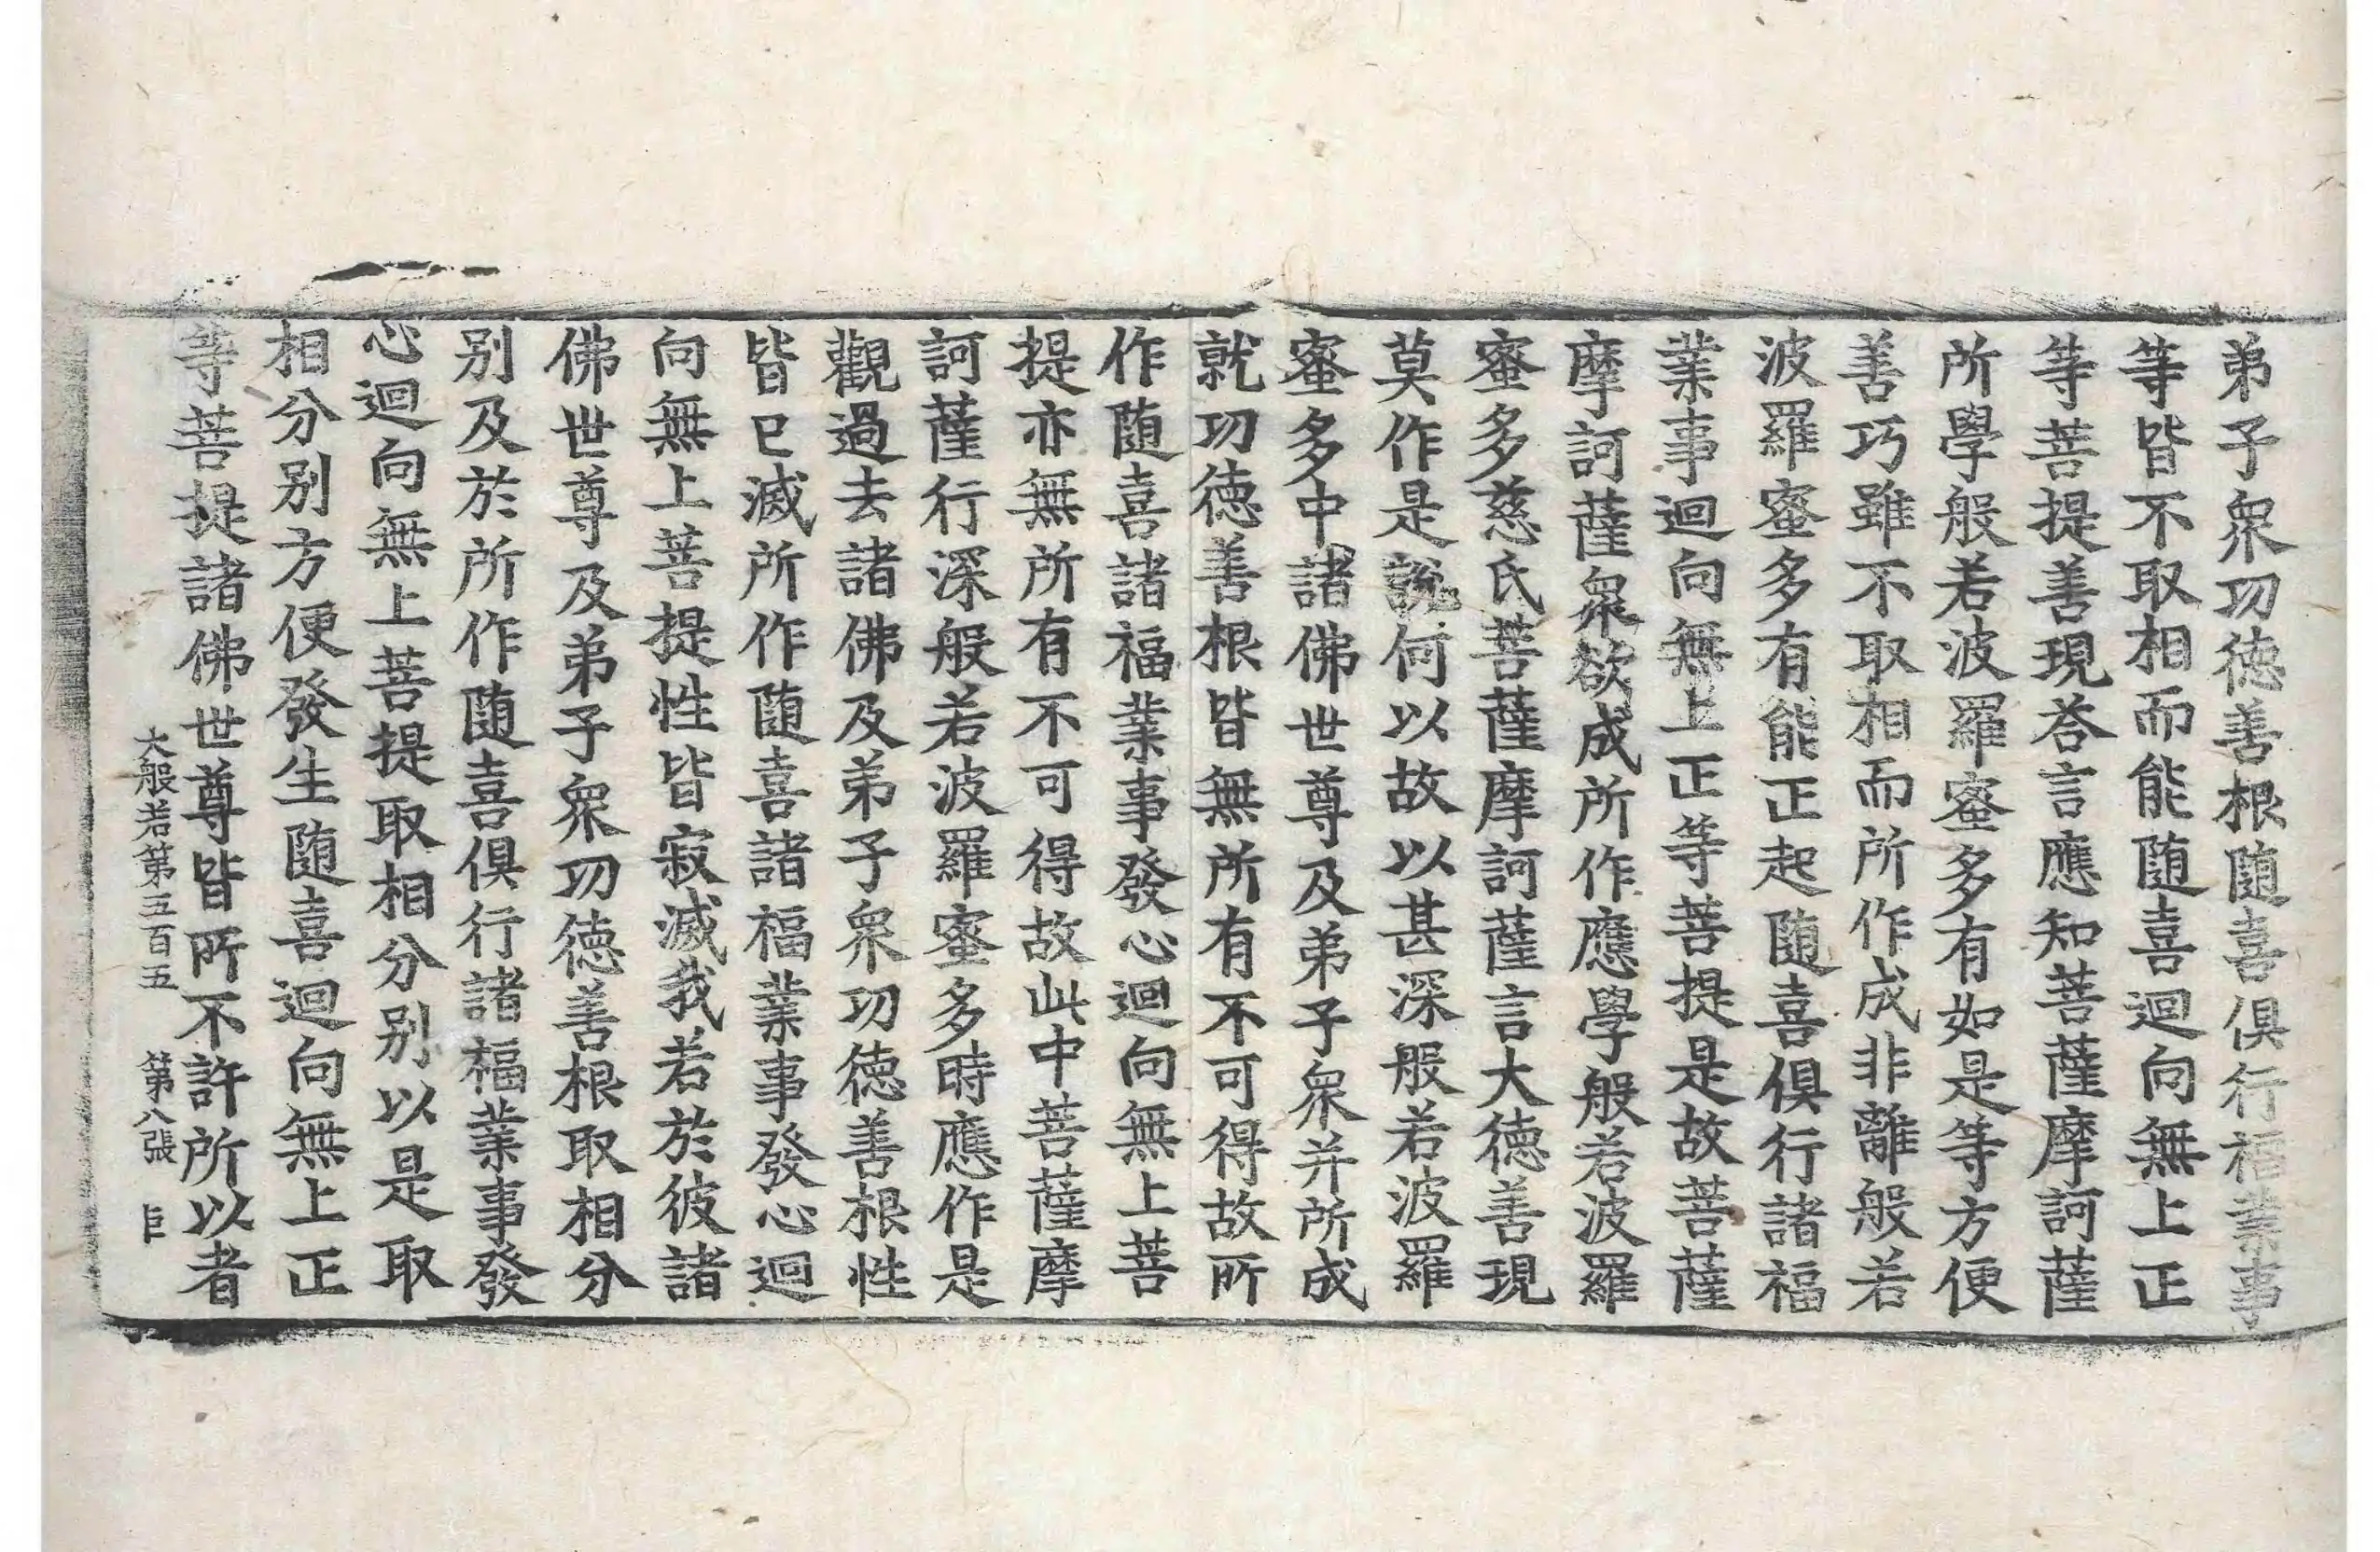 弟子衆功徳善根隨喜俱行福業事
等皆不取相而能隨喜迴向無上正
等菩提善現荅言應知菩薩摩訶薩
所學般若波羅蜜多有如是等方便
善巧雖不取相而所作成非離般若
波羅蜜多有能正起隨喜俱行諸福
業事迴向無上正等菩提是故菩薩
摩訶薩衆欲成所作應學般若波羅
蜜多慈氏菩薩摩訶薩言大徳善現
莫作是說何以故以甚深般若波羅
蜜多中諸佛世尊及弟子衆并所成
就功徳善根皆無所有不可得故所
作隨喜諸福業事發心迴向無上菩
提亦無所有不可得故此中菩薩摩
訶薩行深般若波羅蜜多時應作是
觀過去諸佛及弟子衆功徳善根性
皆已滅所作隨喜諸福業事發心迴
向無上菩提性皆寂滅我若於彼諸
佛世尊及弟子衆功徳善根取相分
别及於所作隨喜俱行諸福業事發
心迴向無上菩提取相分别以是取
相分别方便發生隨喜迴向無上正
等菩提諸佛世尊皆所不許所以者
大般若第五百五 第八張 巨